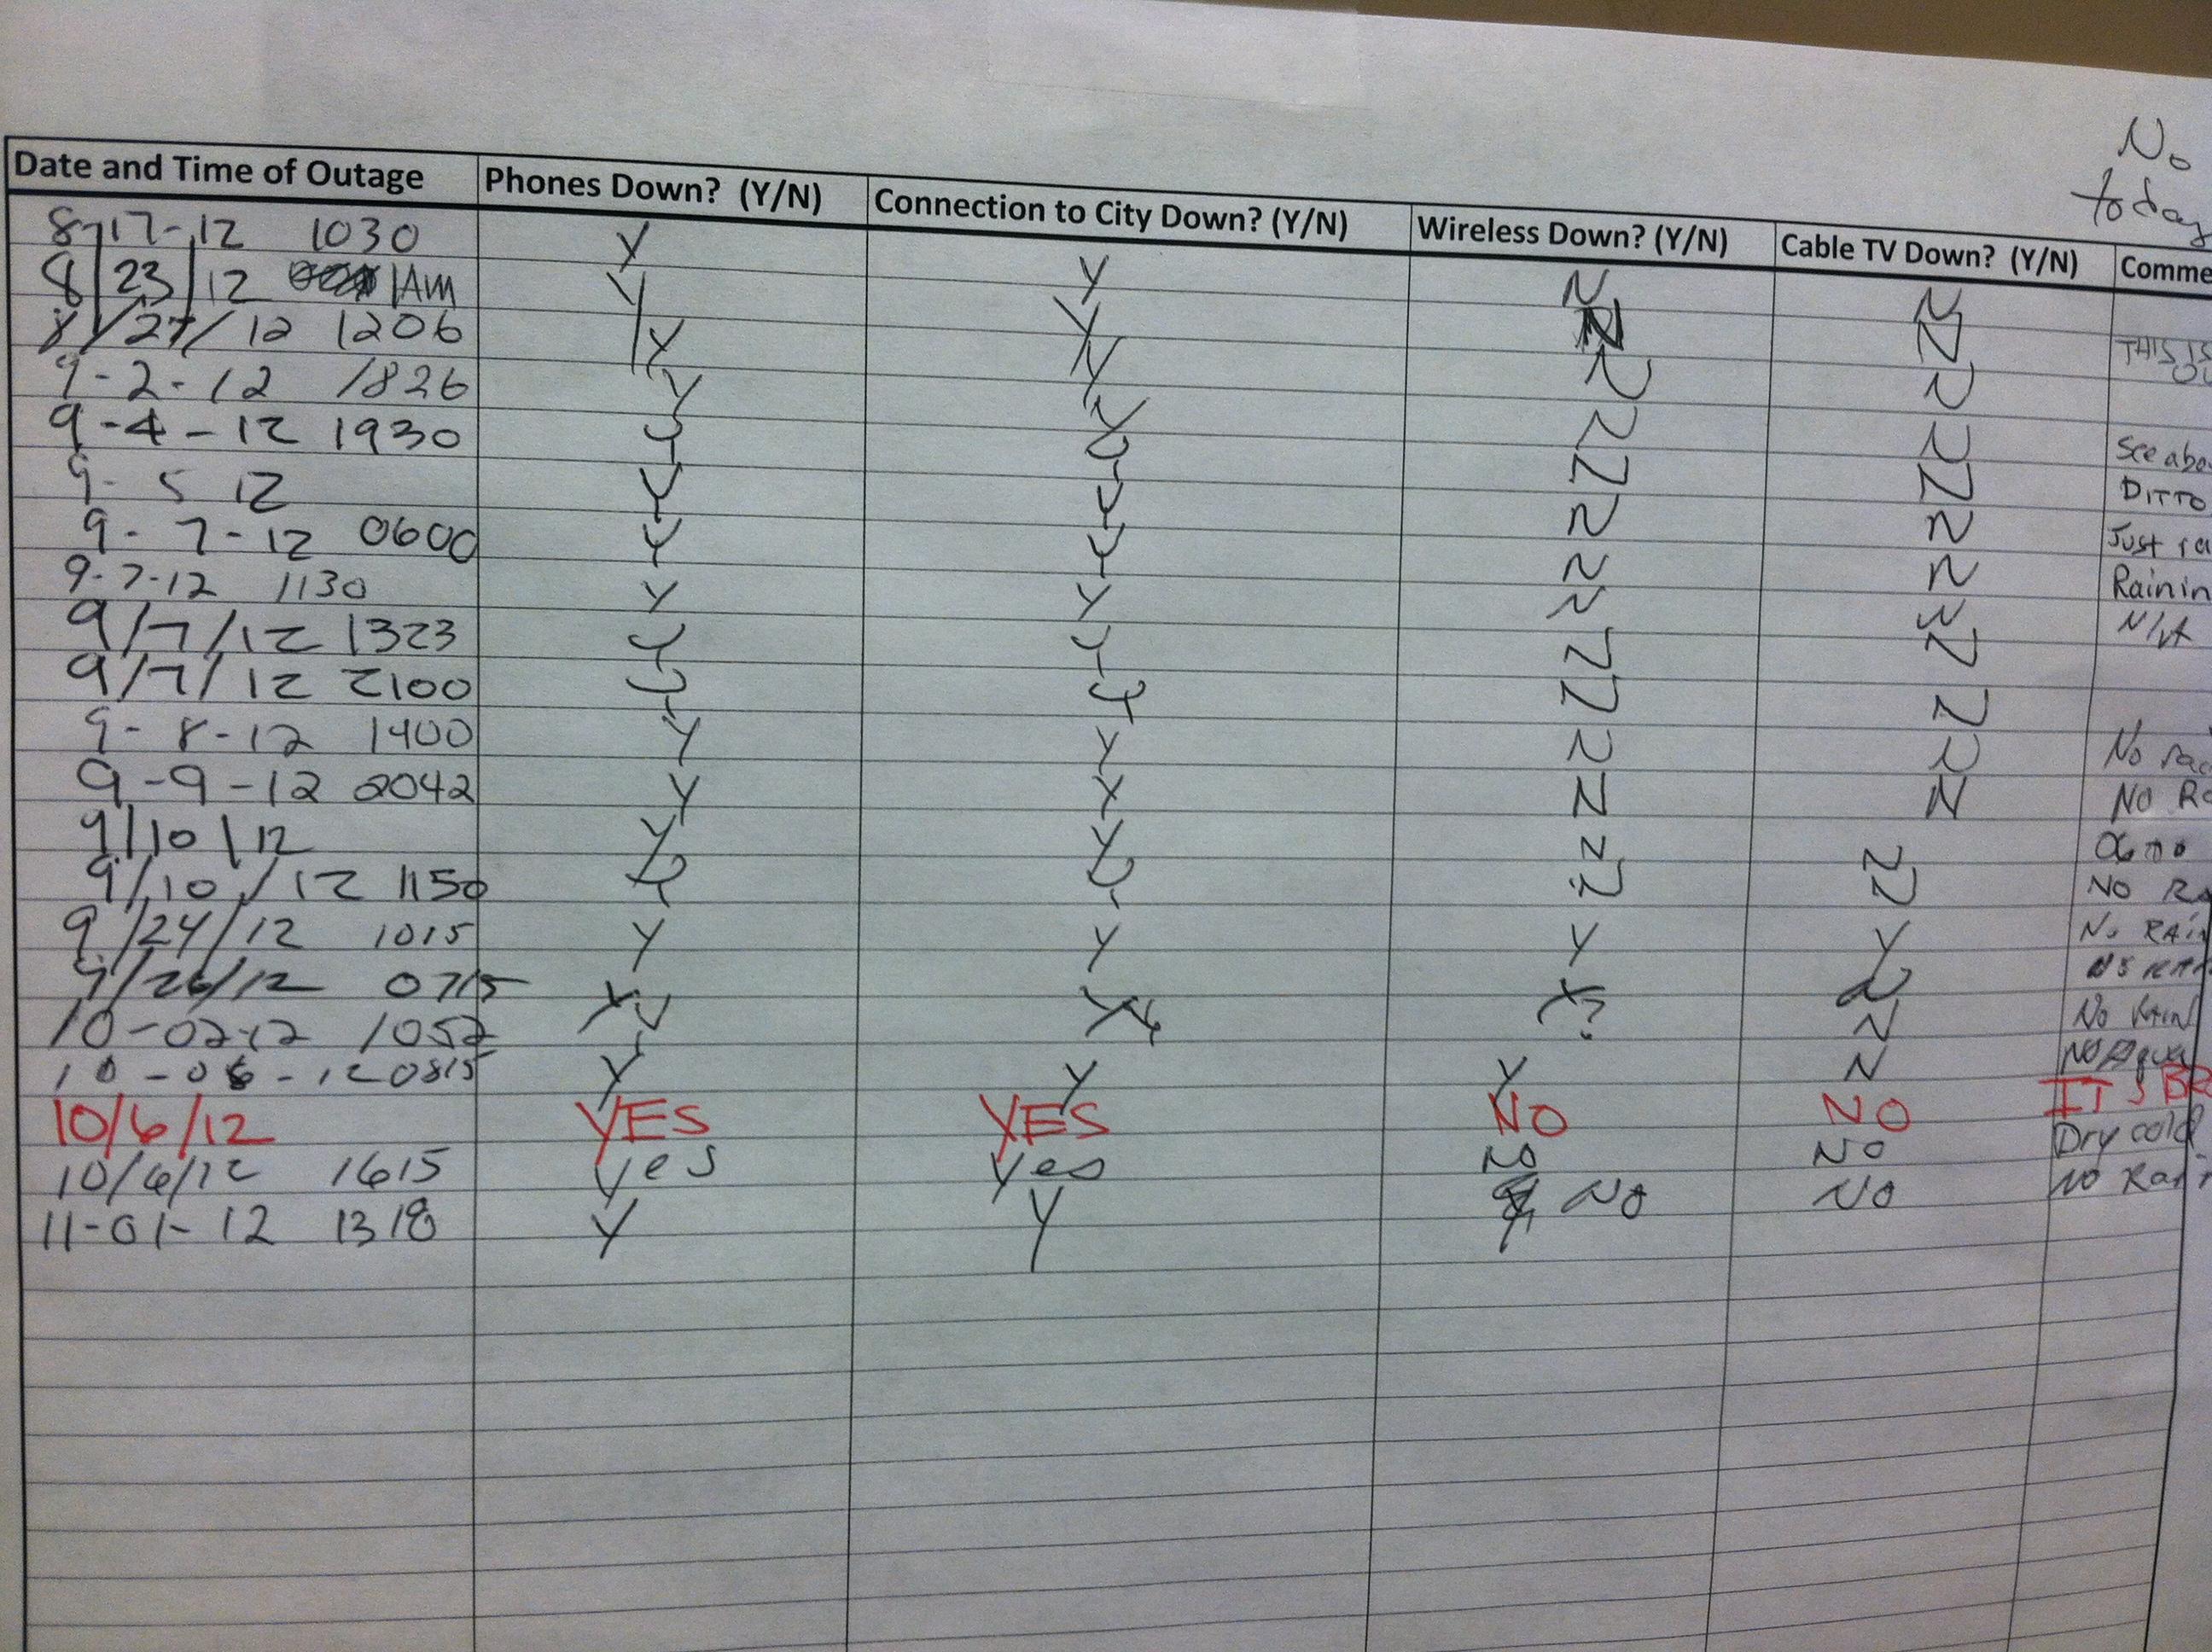 No
today
Date and Time of Outage Phones Down? (Y/N) Connection to City Down? (Y/N) Wireless Down? (Y/N) Cable TV Down? (Y/N) Comme
8-17-12 1030 Y Y N N
8/23/12 1AM Y Y N N THIS IS
8/27/12 1206 Y Y N N
9-2-12 1826 Y Y N N See abo
9-4-12 1930 Y Y N N DITTO
9-5 12 Y Y N N Just ra
9-7-12 0600 Y Y N N Rainin
9-7-12 1130 Y Y N N N/A
9/7/12 1323 Y Y N N
9/7/12 2100 Y Y N N
9-8-12 1400 Y Y N N No
9-9-12 2042 Y Y N N NO Ra
9/10/12 Y Y N N
9/10/12 1150 Y Y ? N NO Ra
9/24/12 1015 Y Y Y Y No RAin
9/26/12 0715 Y Y Y
10-02-12 1052 Y Y ? N No RAIN
10-06-12 0815 Y Y Y N
10/6/12 YES YES NO NO IT'S BR
10/6/12 1615 Yes Yes NO NO Dry cold
11-01-12 1318 Y Y NO NO NO Rain